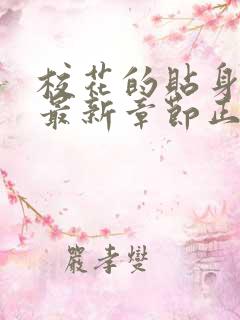 校花的貼身
最新章節正
嚴孝燮